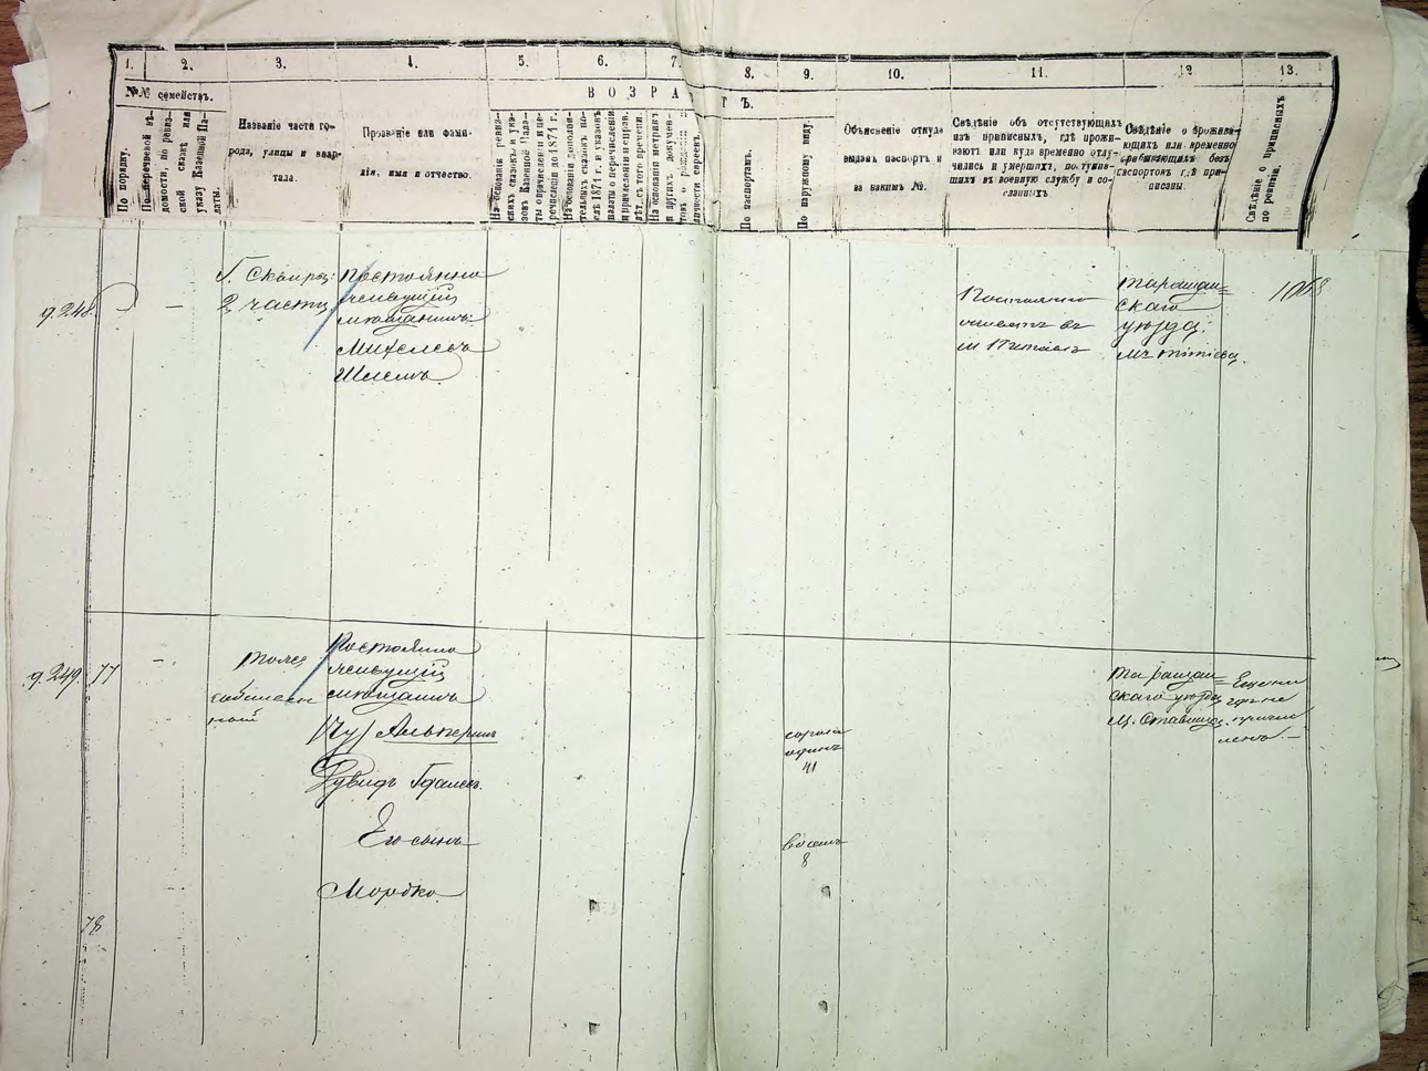 1. 2. 3. 4. 5. 6. 7. 8. 9. 10. 11. 12 13.
№№ семействъ.
В О З Р А С Т Ъ.
По порядку.
По перечневой вѣ-
домости, по ревиз-
ской сказкѣ или
указу Казенной Па-
латы.
Названіе части го-
рода, улицы и квар-
тала.
Прозваніе или фами-
лія, имя и отчество.
На основаніи ревиз-
скихъ сказокъ и ука-
зовъ Казенной Пала-
ты о причисленіи и пе-
речисленіи до 1874 г.
На основаніи дополни-
тельныхъ сказокъ по-
слѣ 1874 г. и указовъ
палаты о перечисленіи
и причисленіи и прав.
лѣт. съ того времени.
На основаніи метрикъ
и другихъ докумен-
товъ о рожденіи и
личности евреевъ.
По паспортамъ.
По наружному виду.
Объясненіе откуда
выданъ паспортъ и
за какимъ №.
Свѣдѣніе объ отсутствующихъ
изъ приписныхъ, гдѣ прожи-
ваютъ или куда временно отлу-
чились и умершихъ, поступив-
шихъ въ военную службу и со-
сланныхъ
Свѣдѣніе о прожива-
ющихъ или временно
пребывающихъ безъ
паспортовъ гдѣ при-
писаны.
Свѣдѣніе о приписныхъ
по ревизіи.
д. 248.
—
Г. Сквира:
2 части
Постоянно
живущій
мѣщанинъ:
Михелевъ
Шлема
Постоянно
живетъ въ
Таращан=
скаго
уѣзда:
1068
д. 249. 77
—
тоже
Постоянно
живущій
мѣщанинъ
/Чу/ Альперинъ
Дувидъ Гдалев.
Его сынъ
Мордко
сорокъ
одинъ
41
восемь
8
Таращан=
скаго уѣзда
М. Ставища.
78